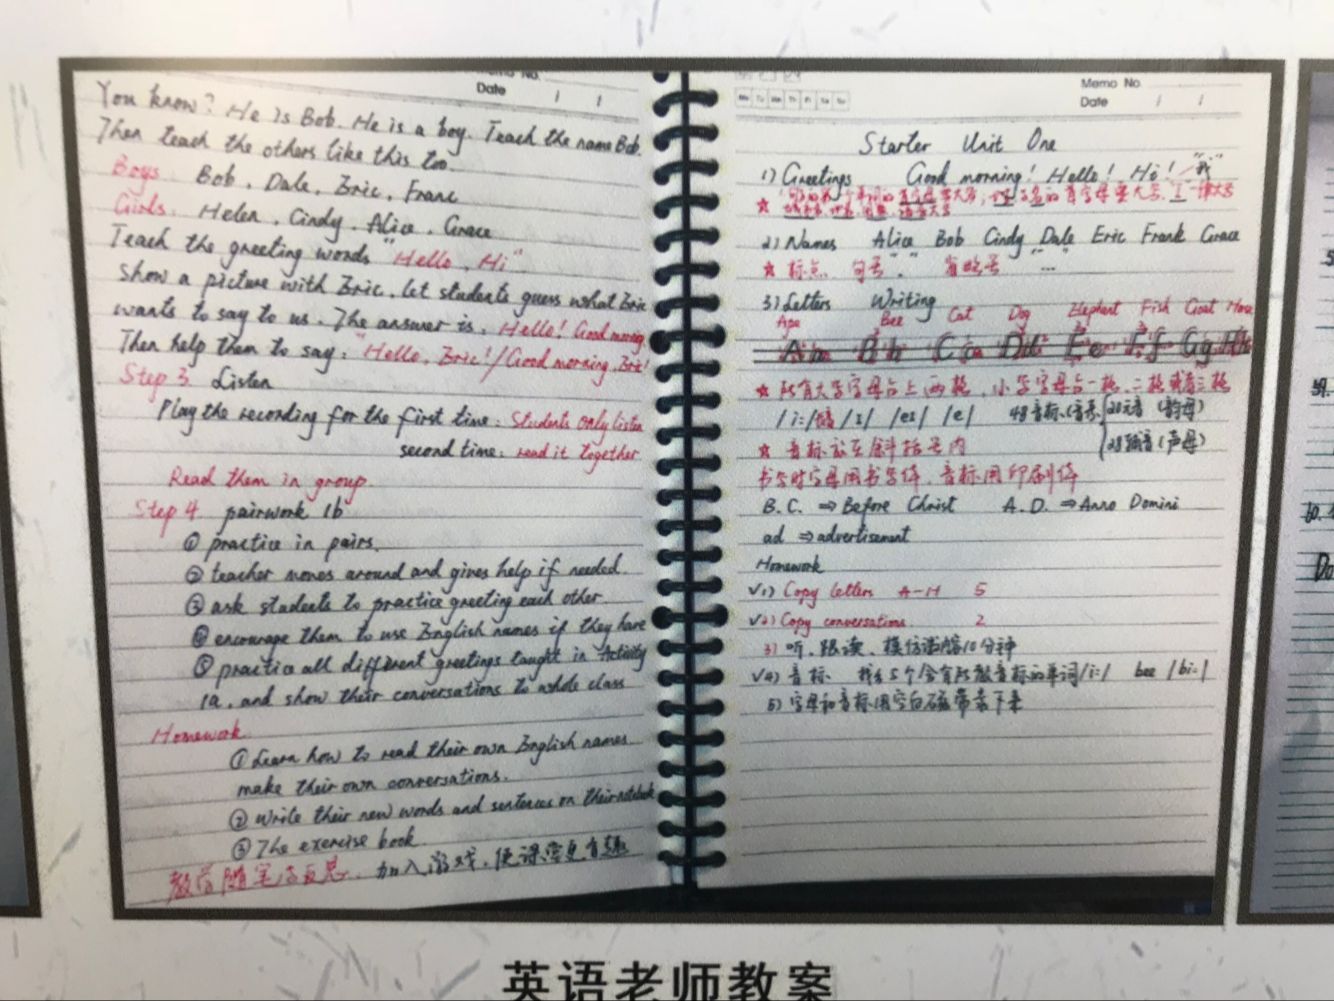 Memo No.
Date / /
You know? He is Bob. He is a boy. Teach the name Bob.
Then teach the others like this too.
Boys. Bob, Dale, Eric, Franc
Girls. Helen, Cindy, Alice, Grace
Teach the greeting words "Hello, Hi"
Show a picture with Eric, let students guess what Eric
wants to say to us. The answer is, Hello! Good morning
Then help them to say: "Hello, Eric! / Good morning, Eric!
Step 3 Listen
Play the recording for the first time: Students only listen
second time: read it together
Read them in group
Step 4 pairwork 1b
① practice in pairs.
② teacher moves around and gives help if needed.
③ ask students to practice greeting each other
④ encourage them to use English names if they have
⑤ practice all different greetings taught in Activity
1a, and show their conversations to whole class
Homework
① Learn how to read their own English names
make their own conversations.
② Write their new words and sentences on their notebook
③ The exercise book
教学随笔与反思. 加入游戏,使课堂更有趣
Memo No.
Mo Tu We Th Fr Sa Su
Date / /
Starter Unit One
1) Greetings Good morning! Hello! Hi! "我"
★
2) Names Alice Bob Cindy Dale Eric Frank Grace
★ 标点 句号"." 省略号 "…"
3) Letters Writing
Ape Bee Cat Dog Elephant Fish Goat Horse
Aa Bb Cc Dd Ee Ff Gg Hh
★ 所有大写字母占上两格,小写字母占一格、二格或者三格
/i:/ /ɪ/ /eɪ/ /e/ 48音标(音素) 20元音(韵母)
28辅音(声母)
★ 音标放在斜括号内
书写时字母用书写体,音标用印刷体
B.C. ⇒ Before Christ A.D. ⇒ Anno Domini
ad ⇒ advertisement
Homework
√1) Copy letters A-H 5
√2) Copy conversations. 2
3) 听、跟读、模仿 10分钟
√4) 音标 5个含有所教音标的单词/i:/ bee /bi:/
5) 字母和音标用空白磁带录下来
英语老师教案